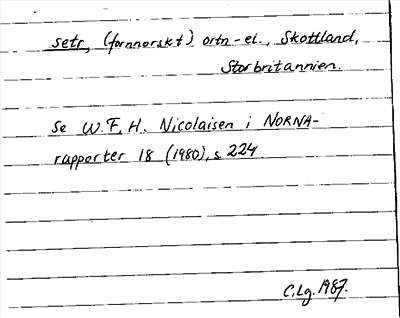 setr, (fornnorskt) ortn-el., Skottland,
Storbritannien.
Se W.F.H. Nicolaisen i NORNA-
rapporter 18 (1980), s 224
C.Lg. 1987.